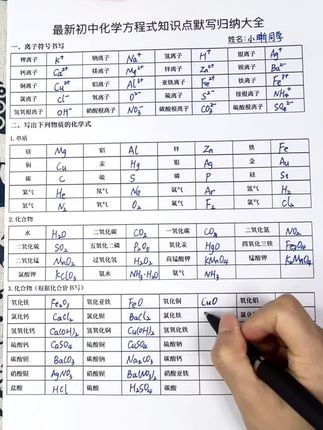 最新初中化学方程式知识点默写归纳大全
一、离子符号书写
钾离子 K⁺ 钠离子 Na⁺ 氢离子 H⁺ 银离子 Ag⁺
钙离子 Ca²⁺ 镁离子 Mg²⁺ 锌离子 Zn²⁺ 钡离子 Ba²⁺
铜离子 Cu²⁺ 铝离子 Al³⁺ 亚铁离子 Fe²⁺ 铁离子 Fe³⁺
氯离子 Cl⁻ 氧离子 O²⁻ 硫离子 S²⁻ 铵根离子 NH₄⁺
氢氧根离子 OH⁻ 硝酸根离子 NO₃⁻ 碳酸根离子 CO₃²⁻ 硫酸根离子 SO₄²⁻
二、写出下列物质的化学式
1.单质
镁 Mg 铝 Al 锌 Zn 铁 Fe
铜 Cu 汞 Hg 银 Ag 金 Au
碳 C 硫 S 磷 P 硅
氦气 He 氖气 Ne 氩气 Ar 氢气 H₂
氮气 N₂ 氧气 O₂ 氟气 F₂ 氯气 Cl₂
2.化合物
水 H₂O 二氧化碳 CO₂ 一氧化碳 CO 二氧化氮 NO₂
二氧化硫 SO₂ 五氧化二磷 P₂O₅ 氧化汞 HgO 四氧化三铁 Fe₃O₄
二氧化锰 MnO₂ 过氧化氢 H₂O₂ 高锰酸钾 KMnO₄ 锰酸钾 K₂MnO₄
氯酸钾 KClO₃ 氨水 NH₃·H₂O 氨气 NH₃
3.化合物（根据化合价书写）
氧化铁 Fe₂O₃ 氧化亚铁 FeO 氧化铜 CuO 氧化铝
氯化钙 CaCl₂ 氯化钡 BaCl₂
氢氧化钙 Ca(OH)₂ 氢氧化铜 Cu(OH)₂ 氢氧化铁
硫酸钙 CaSO₄ 硫酸铜 CuSO₄ 硫酸钠
碳酸钡 BaCO₃ 碳酸钠 Na₂CO₃ 碳酸钙
硝酸银 AgNO₃ 硝酸钡 Ba(NO₃)₂ 硝酸亚铁
盐酸 HCl 硫酸 H₂SO₄ 碳酸